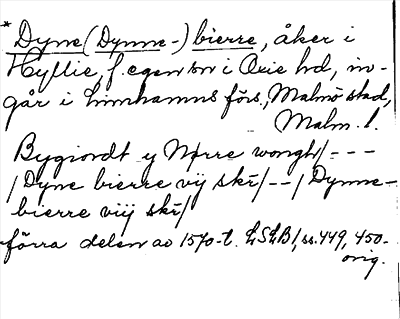 * Dyne (Dynne-) bierre, åker i
Hyllie, f. egen sn i Oxie hd, in-
går i Limhamns förs., Malmö stad,
Malm. l.
Bygiordt y Nørre wongh/ - - -
/ Dyne bierre vij skr/ - - / Dynne-
bierre viij skr/
förra delen av 1570-t. LSLB1, ss. 449, 450.
orig.